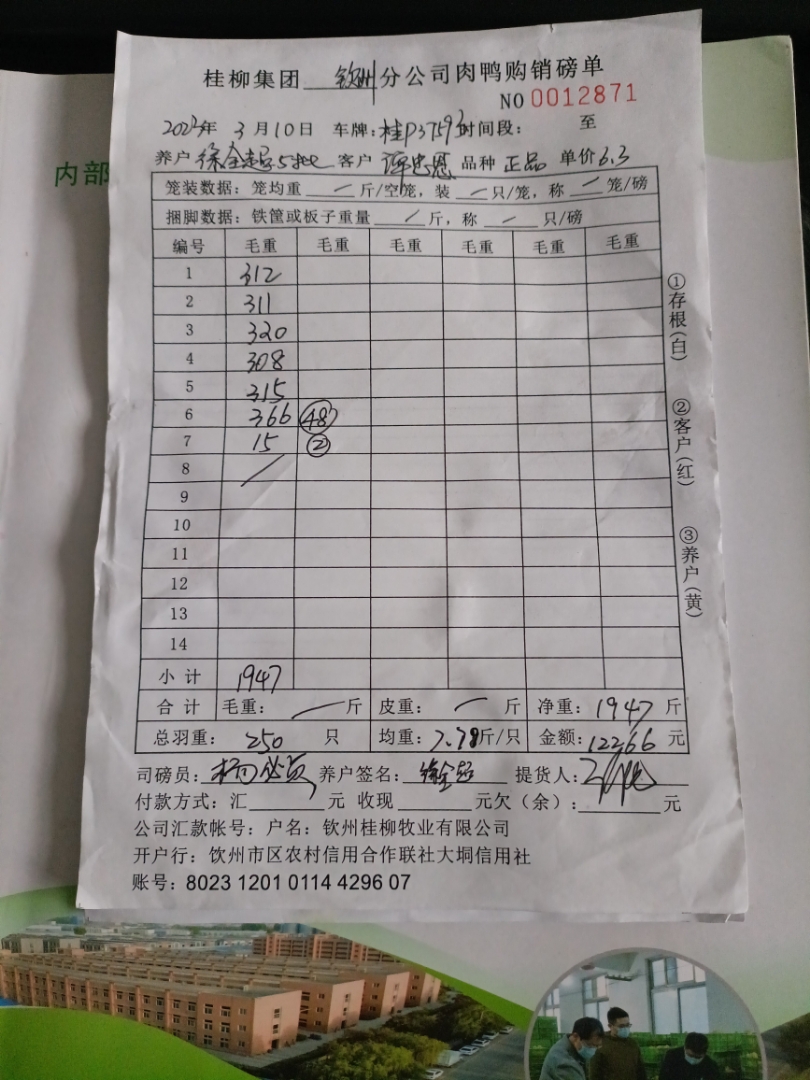 桂柳集团 钦州 分公司肉鸭购销磅单
NO 0012871
2023年 3月10日 车牌:桂P37593 时间段: 至
养户 徐全超5批 客户 品种 正品 单价6.3
笼装数据: 笼均重 / 斤/空笼, 装 / 只/笼, 称 / 笼/磅
捆脚数据: 铁筐或板子重量 / 斤, 称 / 只/磅
编号 毛重 毛重 毛重 毛重 毛重 毛重
1 312
2 311
3 320
4 308
5 315
6 366 48
7 15 ②
8 /
9
10
11
12
13
14
小计 1947
合计 毛重: / 斤 皮重: / 斤 净重: 1947 斤
总羽重: 250 只 均重: 7.78斤/只 金额: 12266 元
司磅员: 养户签名: 徐全超 提货人:
付款方式: 汇 元 收现 元欠(余): 元
公司汇款帐号: 户名: 钦州桂柳牧业有限公司
开户行: 饮州市区农村信用合作联社大垌信用社
账号: 8023 1201 0114 4296 07
①存根(白)
②客户(红)
③养户(黄)
内部